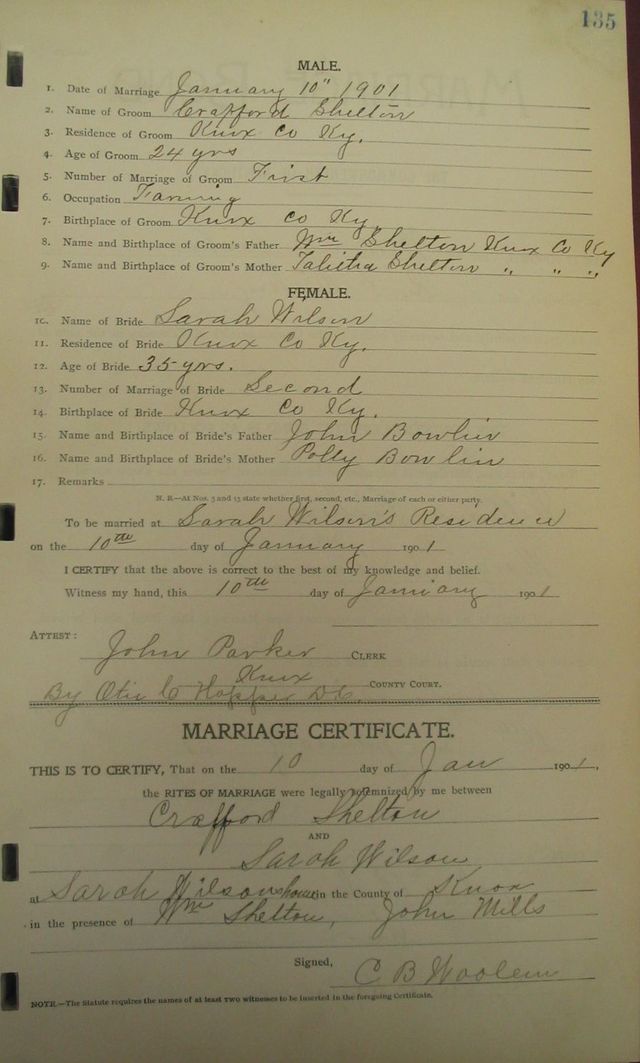 135
MALE.
1. Date of Marriage January 10" 1901
2. Name of Groom Crafford Shelton
3. Residence of Groom Knox Co Ky.
4. Age of Groom 24 yrs
5. Number of Marriage of Groom First
6. Occupation Farming
7. Birthplace of Groom Knox Co Ky
8. Name and Birthplace of Groom's Father Wm Shelton Knox Co Ky
9. Name and Birthplace of Groom's Mother Talitha Shelton " " "
FEMALE.
10. Name of Bride Sarah Wilson
11. Residence of Bride Knox Co Ky.
12. Age of Bride 35 yrs.
13. Number of Marriage of Bride Second
14. Birthplace of Bride Knox Co Ky.
15. Name and Birthplace of Bride's Father John Bowlin
16. Name and Birthplace of Bride's Mother Polly Bowlin
17. Remarks
N. B.—At Nos. 5 and 13 state whether first, second, etc., Marriage of each or either party.
To be married at Sarah Wilson's Residence
on the 10th day of January 1901
I CERTIFY that the above is correct to the best of my knowledge and belief.
Witness my hand, this 10th day of January 1901
ATTEST:
John Parker CLERK
Knox COUNTY COURT.
By Otis C Hopper D.C.
MARRIAGE CERTIFICATE.
THIS IS TO CERTIFY, That on the 10 day of Jan 1901,
the RITES OF MARRIAGE were legally solemnized by me between
Crafford Shelton
AND
Sarah Wilson
at Sarah Wilsons house in the County of Knox
in the presence of Wm Shelton, John Mills
Signed,
C B Woolum
NOTE.—The Statute requires the names of at least TWO witnesses to be inserted in the foregoing Certificate.